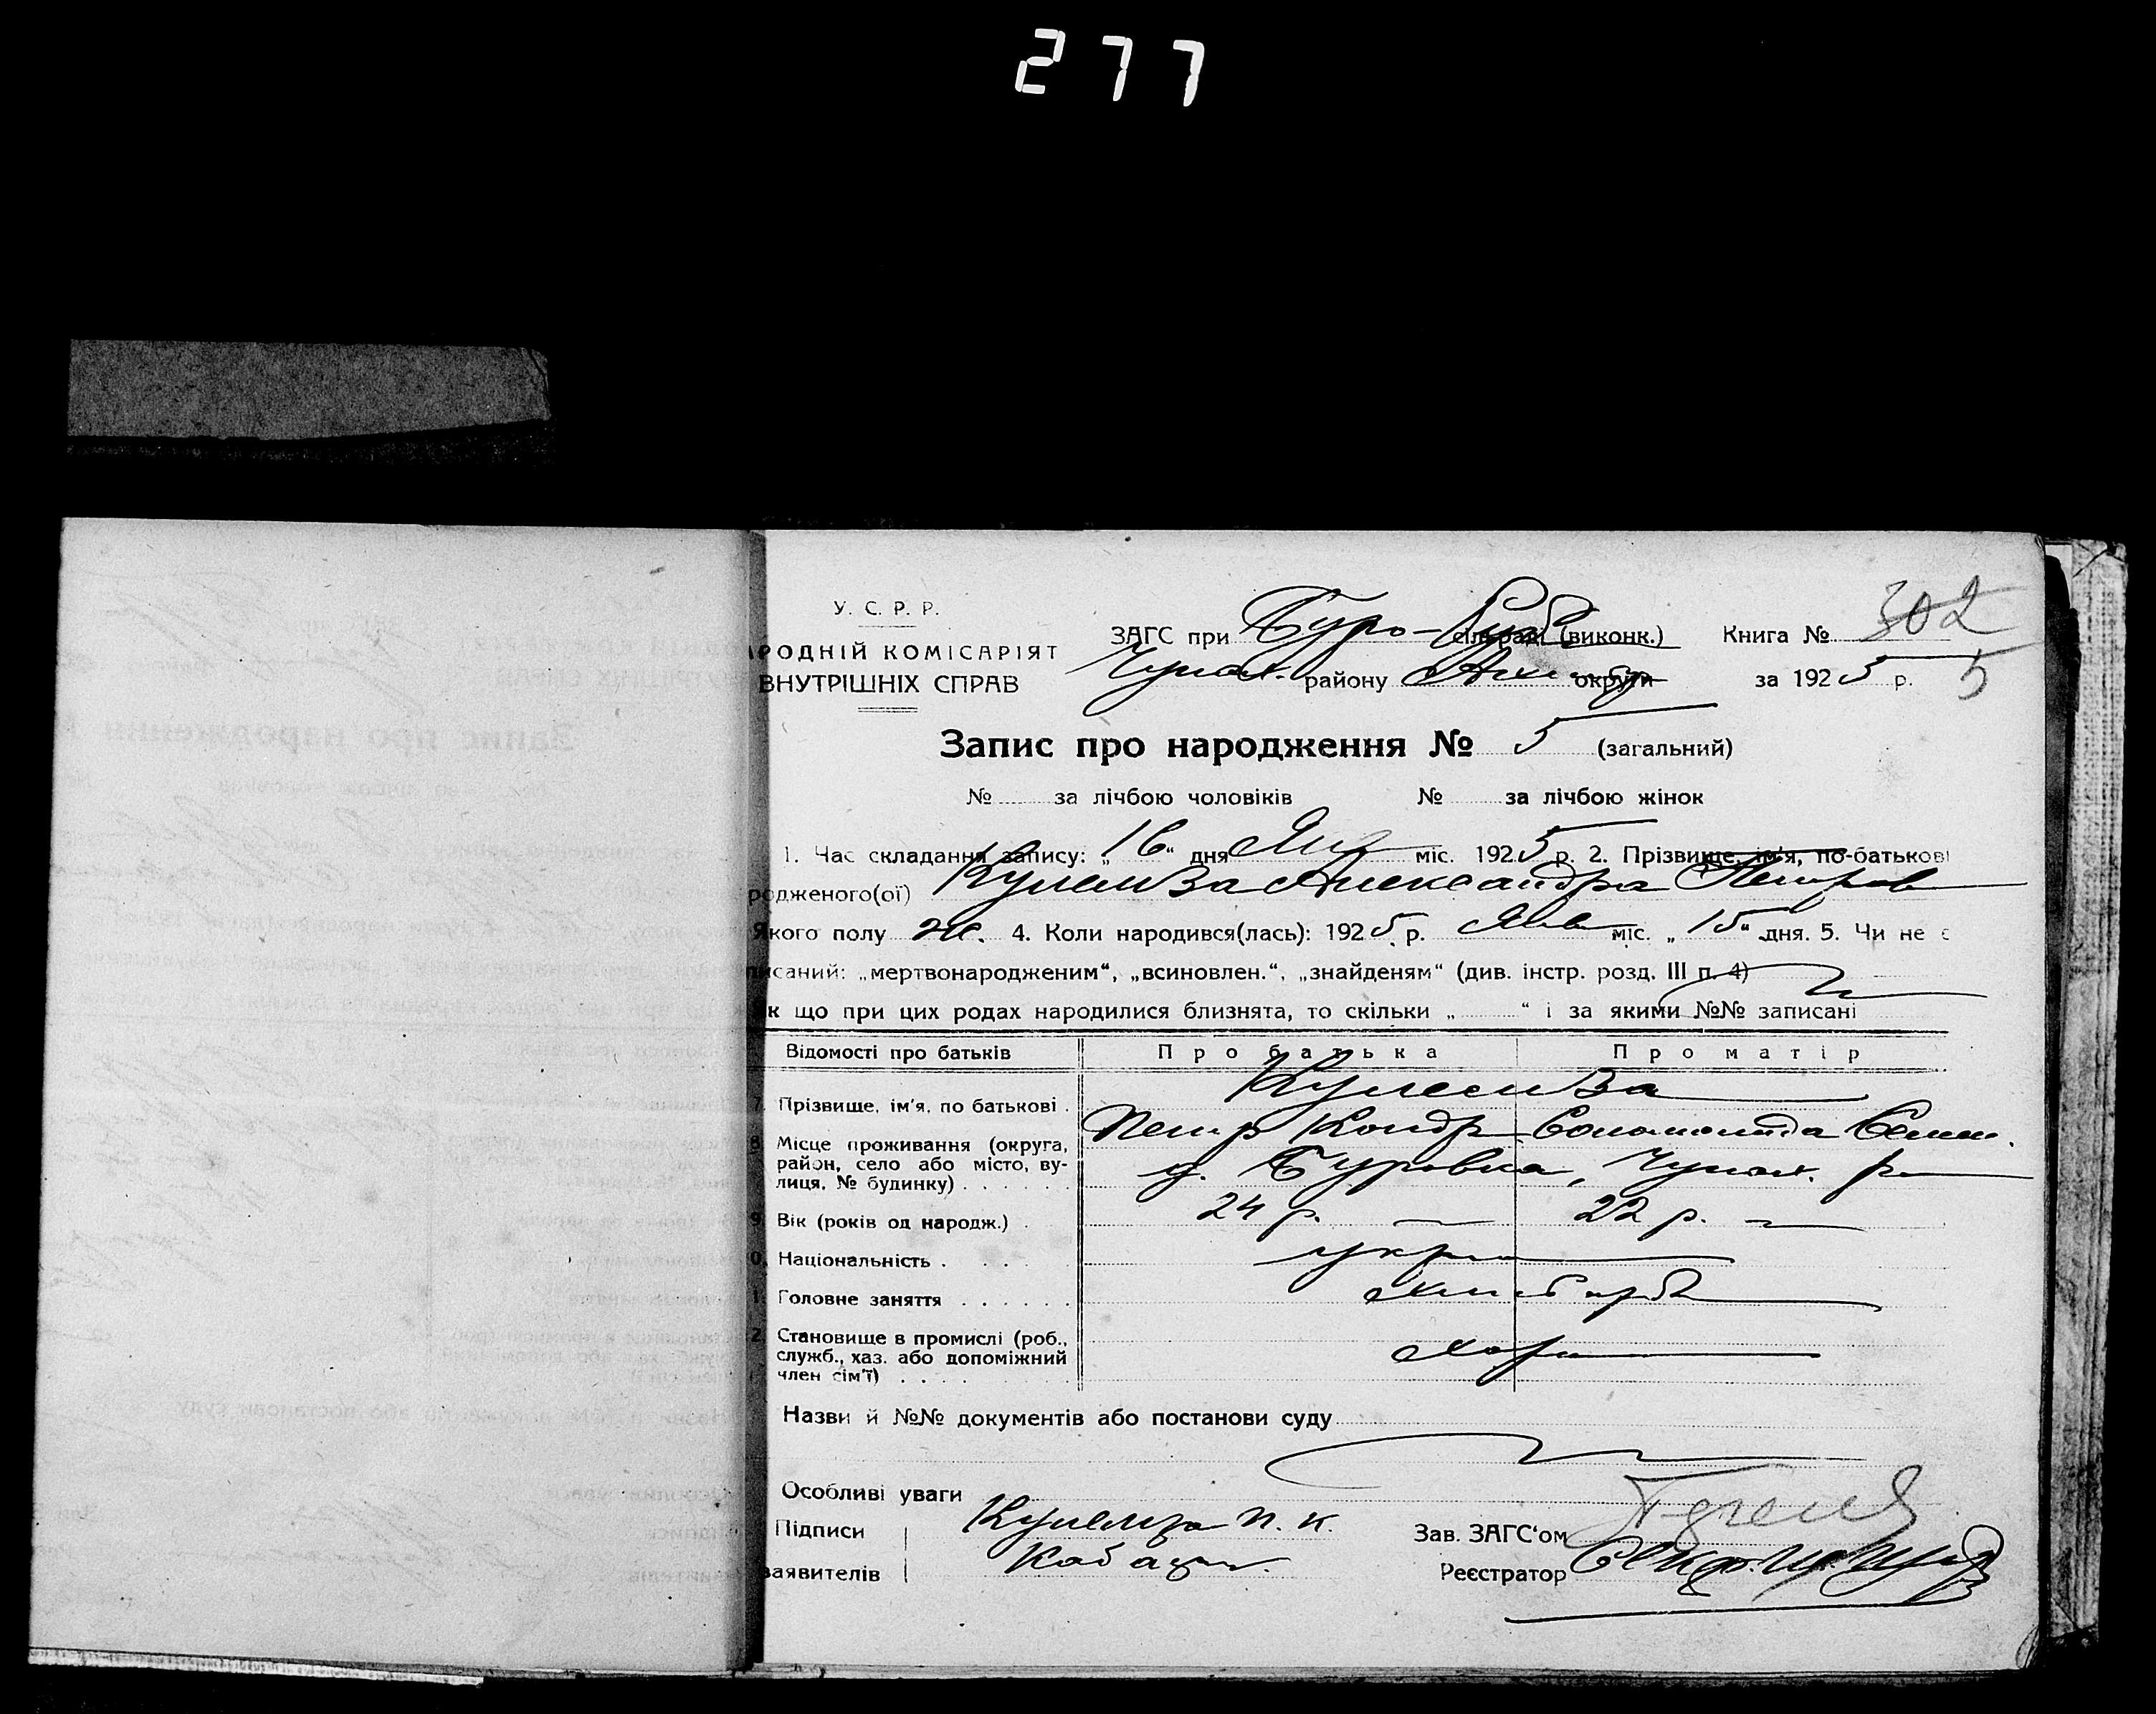 277
302
5
У. С. Р. Р.
АРОДНІЙ КОМІСАРІЯТ
ВНУТРІШНІХ СПРАВ
ЗАГС при Буро- сільраді (виконк.) Книга №
району округи за 1925 р.
Запис про народження № 5 (загальний)
№ за лічбою чоловіків № за лічбою жінок
1. Час складання запису: „16“ дня міс. 1925 р. 2. Прізвище, ім'я, по-батькові
родженого(ої) Кулемза Александра Петров
Якого полу ж. 4. Коли народився(лась): 1925 р. Янв міс. „15“ дня. 5. Чи не є
писаний: „мертвонародженим“, „всиновлен.“, „знайденям“ (див. інстр. розд. III п. 4)
к що при цих родах народилися близнята, то скільки „ “ і за якими №№ записані
Відомості про батьків Про батька Про матір
7. Прізвище, ім'я, по батькові . Кулемза
Петр Кондр Соломонида Семен.
8. Місце проживання (округа, район, село або місто, вулиця, № будинку) . . . . . Буровка, р
9. Вік (років од народж.) . 24 р. 22 р.
0. Національність . . . . укр
1. Головне заняття . . . . . .
2. Становище в промислі (роб., служб., хаз. або допоміжний член сім'ї) . . . .
Назви й №№ документів або постанови суду
Особливі уваги
Підписи Кулемза П. К. Зав. ЗАГС'ом
заявителів Реєстратор